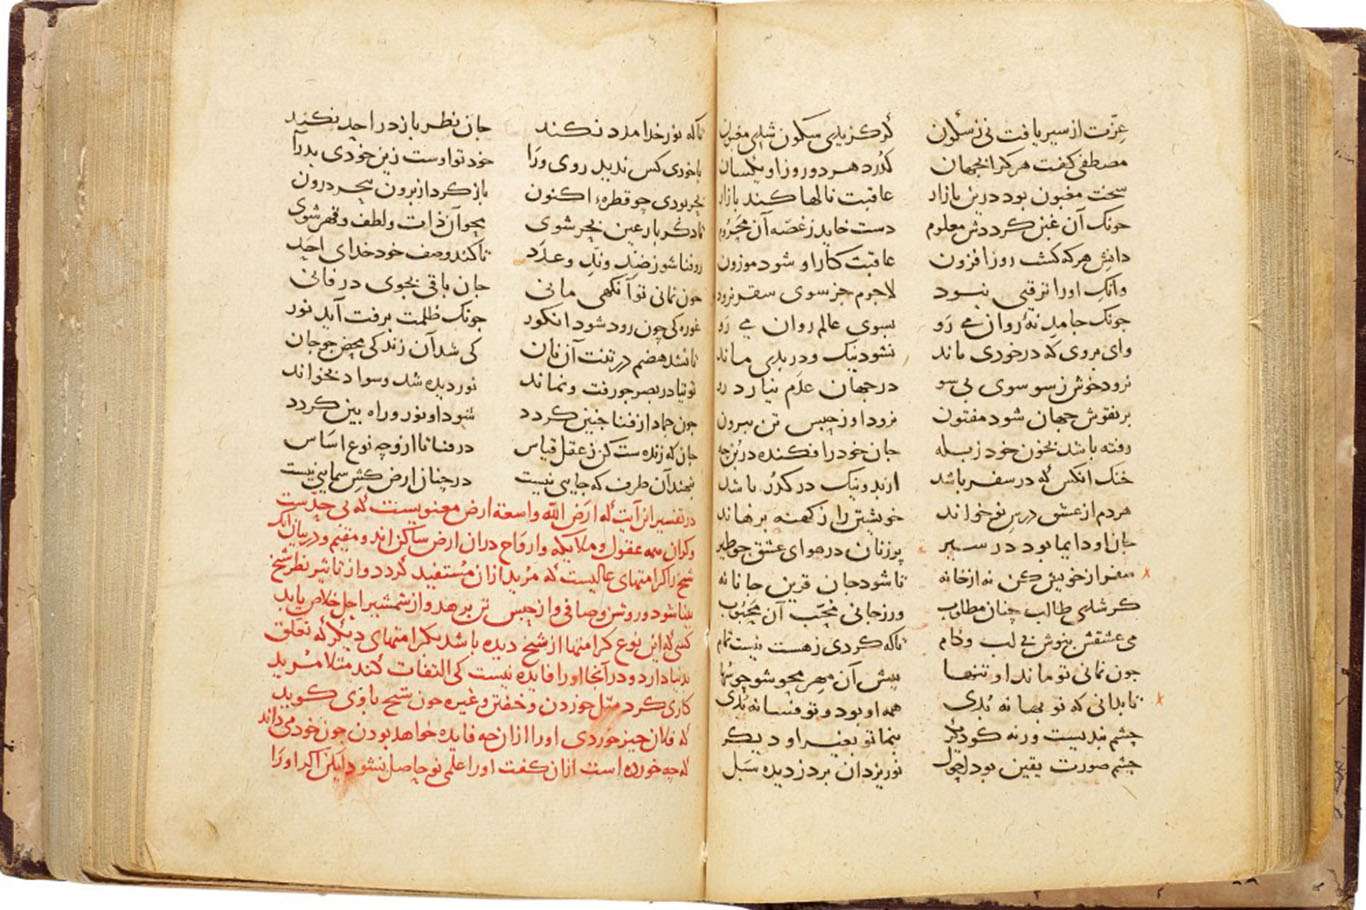 عزت از سیر یافت نی ز سکون گر گزیدی سکون شدی مغبون
مصطفی گفت هرکرا بجهان گذرد هر دو روز او یکسان
سخت مغبون بود درین بازار عاقبت نالها کند بازار
چونک آن غبن گرددش معلوم دست خاید ز غصه آن محروم
دانش هرکه گشت روز افزون عاقبت کار او شود موزون
وانک او را ترقیی نبود لاجرم جز سوی سقر نرود
چونک جامد نهٔ روان می رو بسوی عالم روان می رو
وای بروی که در خودی ماند نشود نیک و در بدی ماند
نرود خوش ز سو سوی بی سو در جهان عدم نیارد رو
بر نقوش جهان شود مفتون نرود او ز حبس تن بیرون
رفته باشد بخون خود ز بله جان خود را فکنده در بن چه
خنک آنکس که در سفر باشد از بد و نیک در گذر باشد
هردم از عشق درس نو خواند خویشتن را ز کهنه برهاند
جان او دایما بود در سیر پرزنان در هوای عشق چو طیر
سفر از خویش کن نه از خانه تا شود جان قرین جانانه
گر شدی طالب چنان مطلوب ور ز جانی محب آن محبوب
می عشقش بنوش بی لب و کام تا که گردی ز هست نیست تمام
چون نمانی تو ماند او تنها پیش آن مهر محو شو چو سها
تا بدانی که تو بها نه بدی همه او بود و تو فسانه بدی
چشم بدبست ورنه کو دیگر بنما تو بغیر او دیگر
چشم صورت یقین بود احول نور یزدان برد ز دیده سبل
تا که نور خدا مدد نکند جان نظر باز در احد نکند
باخودی کس ندید روی ورا خود تو اوست زین خودی بدرآ
بحر بودی چو قطرهٔ اکنون باز گرد از برون ببحر درون
تا دگربار عین بحر شوی محو آن ذات و لطف و قهر شوی
رو فنا شو ز ضد و ند و عدد تا کند وصف خود خدای احد
چون نمانی تو آنگهی مانی جان باقی بجوی در فانی
غوره کی چون رود شود انگور چونک ظلمت برفت آید نور
تا نشد هضم در تنت آن نان کی شد آن زندگی محض چو جان
توتیا در بصر چو رفت و نماند نور دیده شد و سواد بخواند
چون جماد از فنا چنین گردد شود او نور و راه بین گردد
جان که زنده ست کن ز عقل قیاس در فنا تا ازو چه نوع اساس
نهند آن طرف که جایی نیست در چنان ارض کش سمایی نیست
در تفسیر این آیت که ارض الله واسعة ارض معنویست که بی حدست
و کران همه عقول و ملایکه و ارواح در آن ارض ساکن اند و مقیم و در بیان آنک
شیخ را کرامتهای عالیست که مرید از آن مستفید گردد و از تاثیر نظر شیخ
بینا شود و روشن و صافی و از حبس تن برهد و از شمشیر اجل خلاص یابد
کسی که این نوع کرامتها از شیخ دیده باشد بکرامتهای دیگر که تعلق
بدنیا دارد و در آنجا او را فایده نیست کی التفات کند مثلا مرید
کاری کرد مثل خوردن و خفتن و غیره چون شیخ با وی گوید
که فلان چیز خوردی او را از آن چه فایده خواهد بودن چون خود می داند
که چه خورده است از آن گفت او را علمی نو حاصل نشود لیکن اگر او را